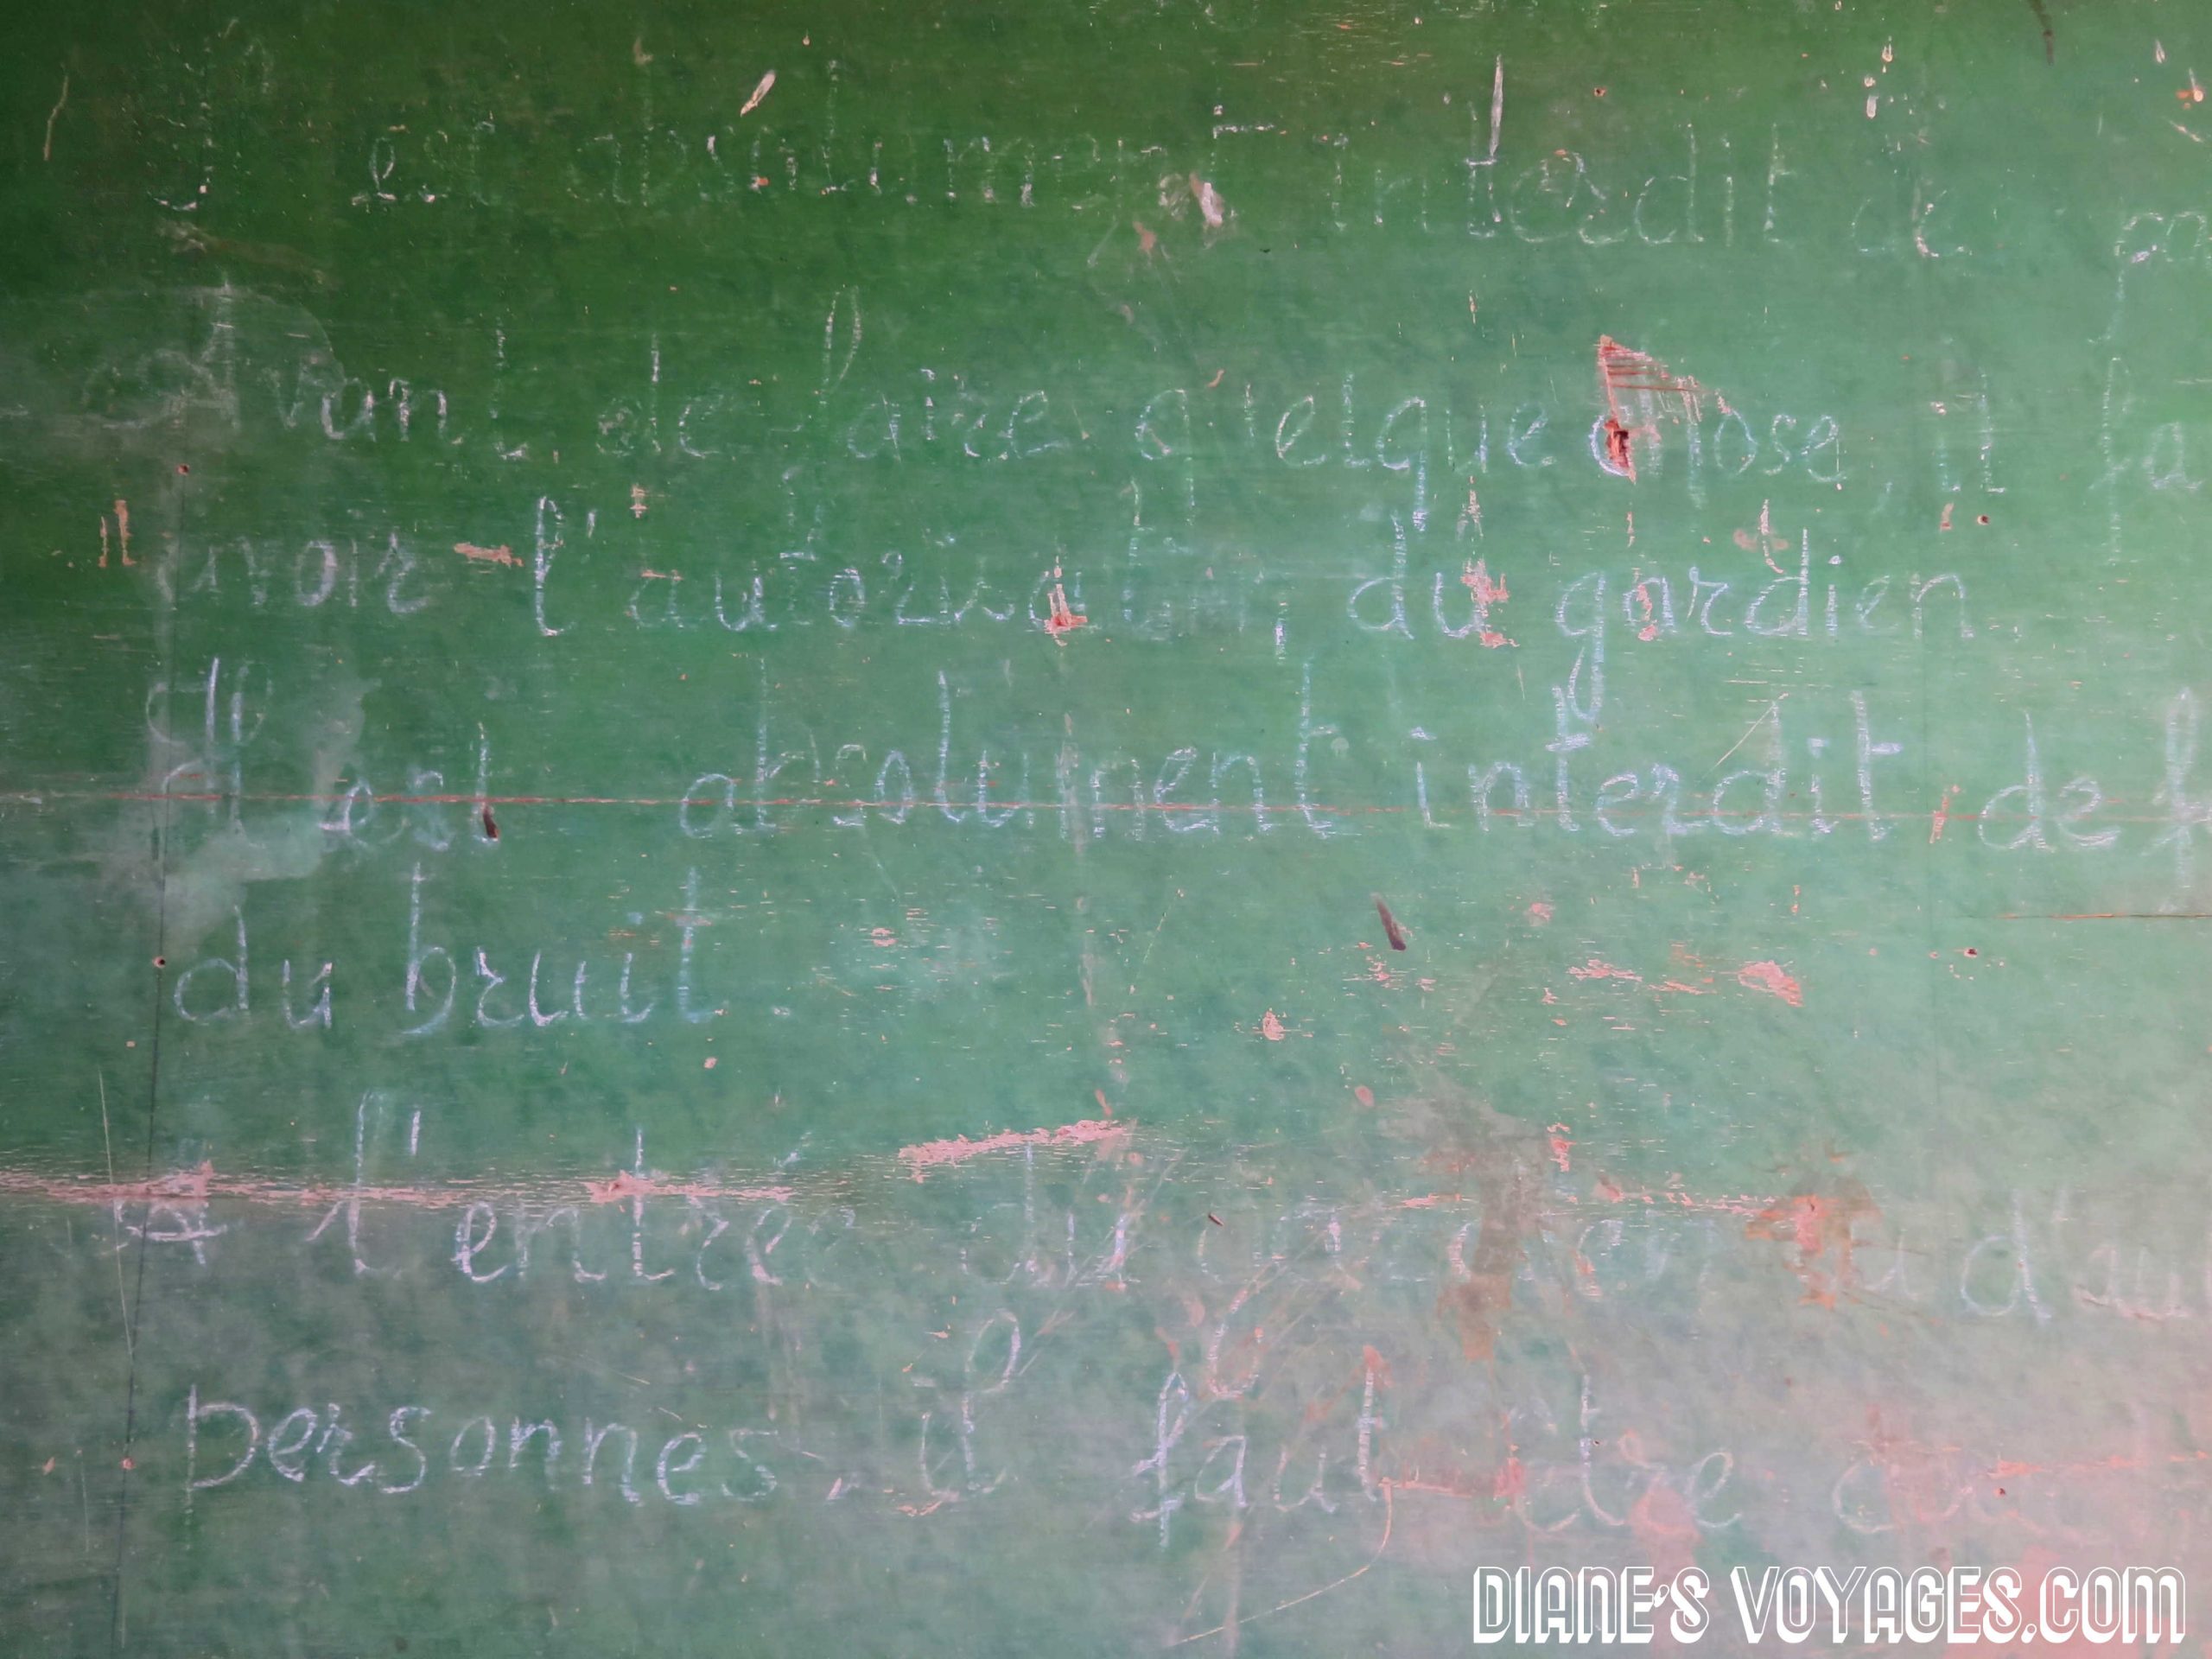 Il est absolument interdit de
Avant de faire quelque chose, il fa
avoir l'autorisation du gardien
Il est absolument interdit de f
du bruit.
A l'entrée du gardien d'au
personnes, il faut être
DIANE'S VOYAGES.COM